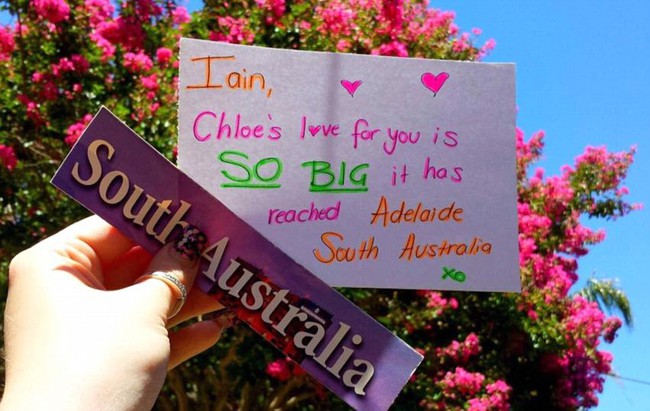 Iain,
Chloe's love for you is
SO BIG it has
reached Adelaide
South Australia
xo
South Australia